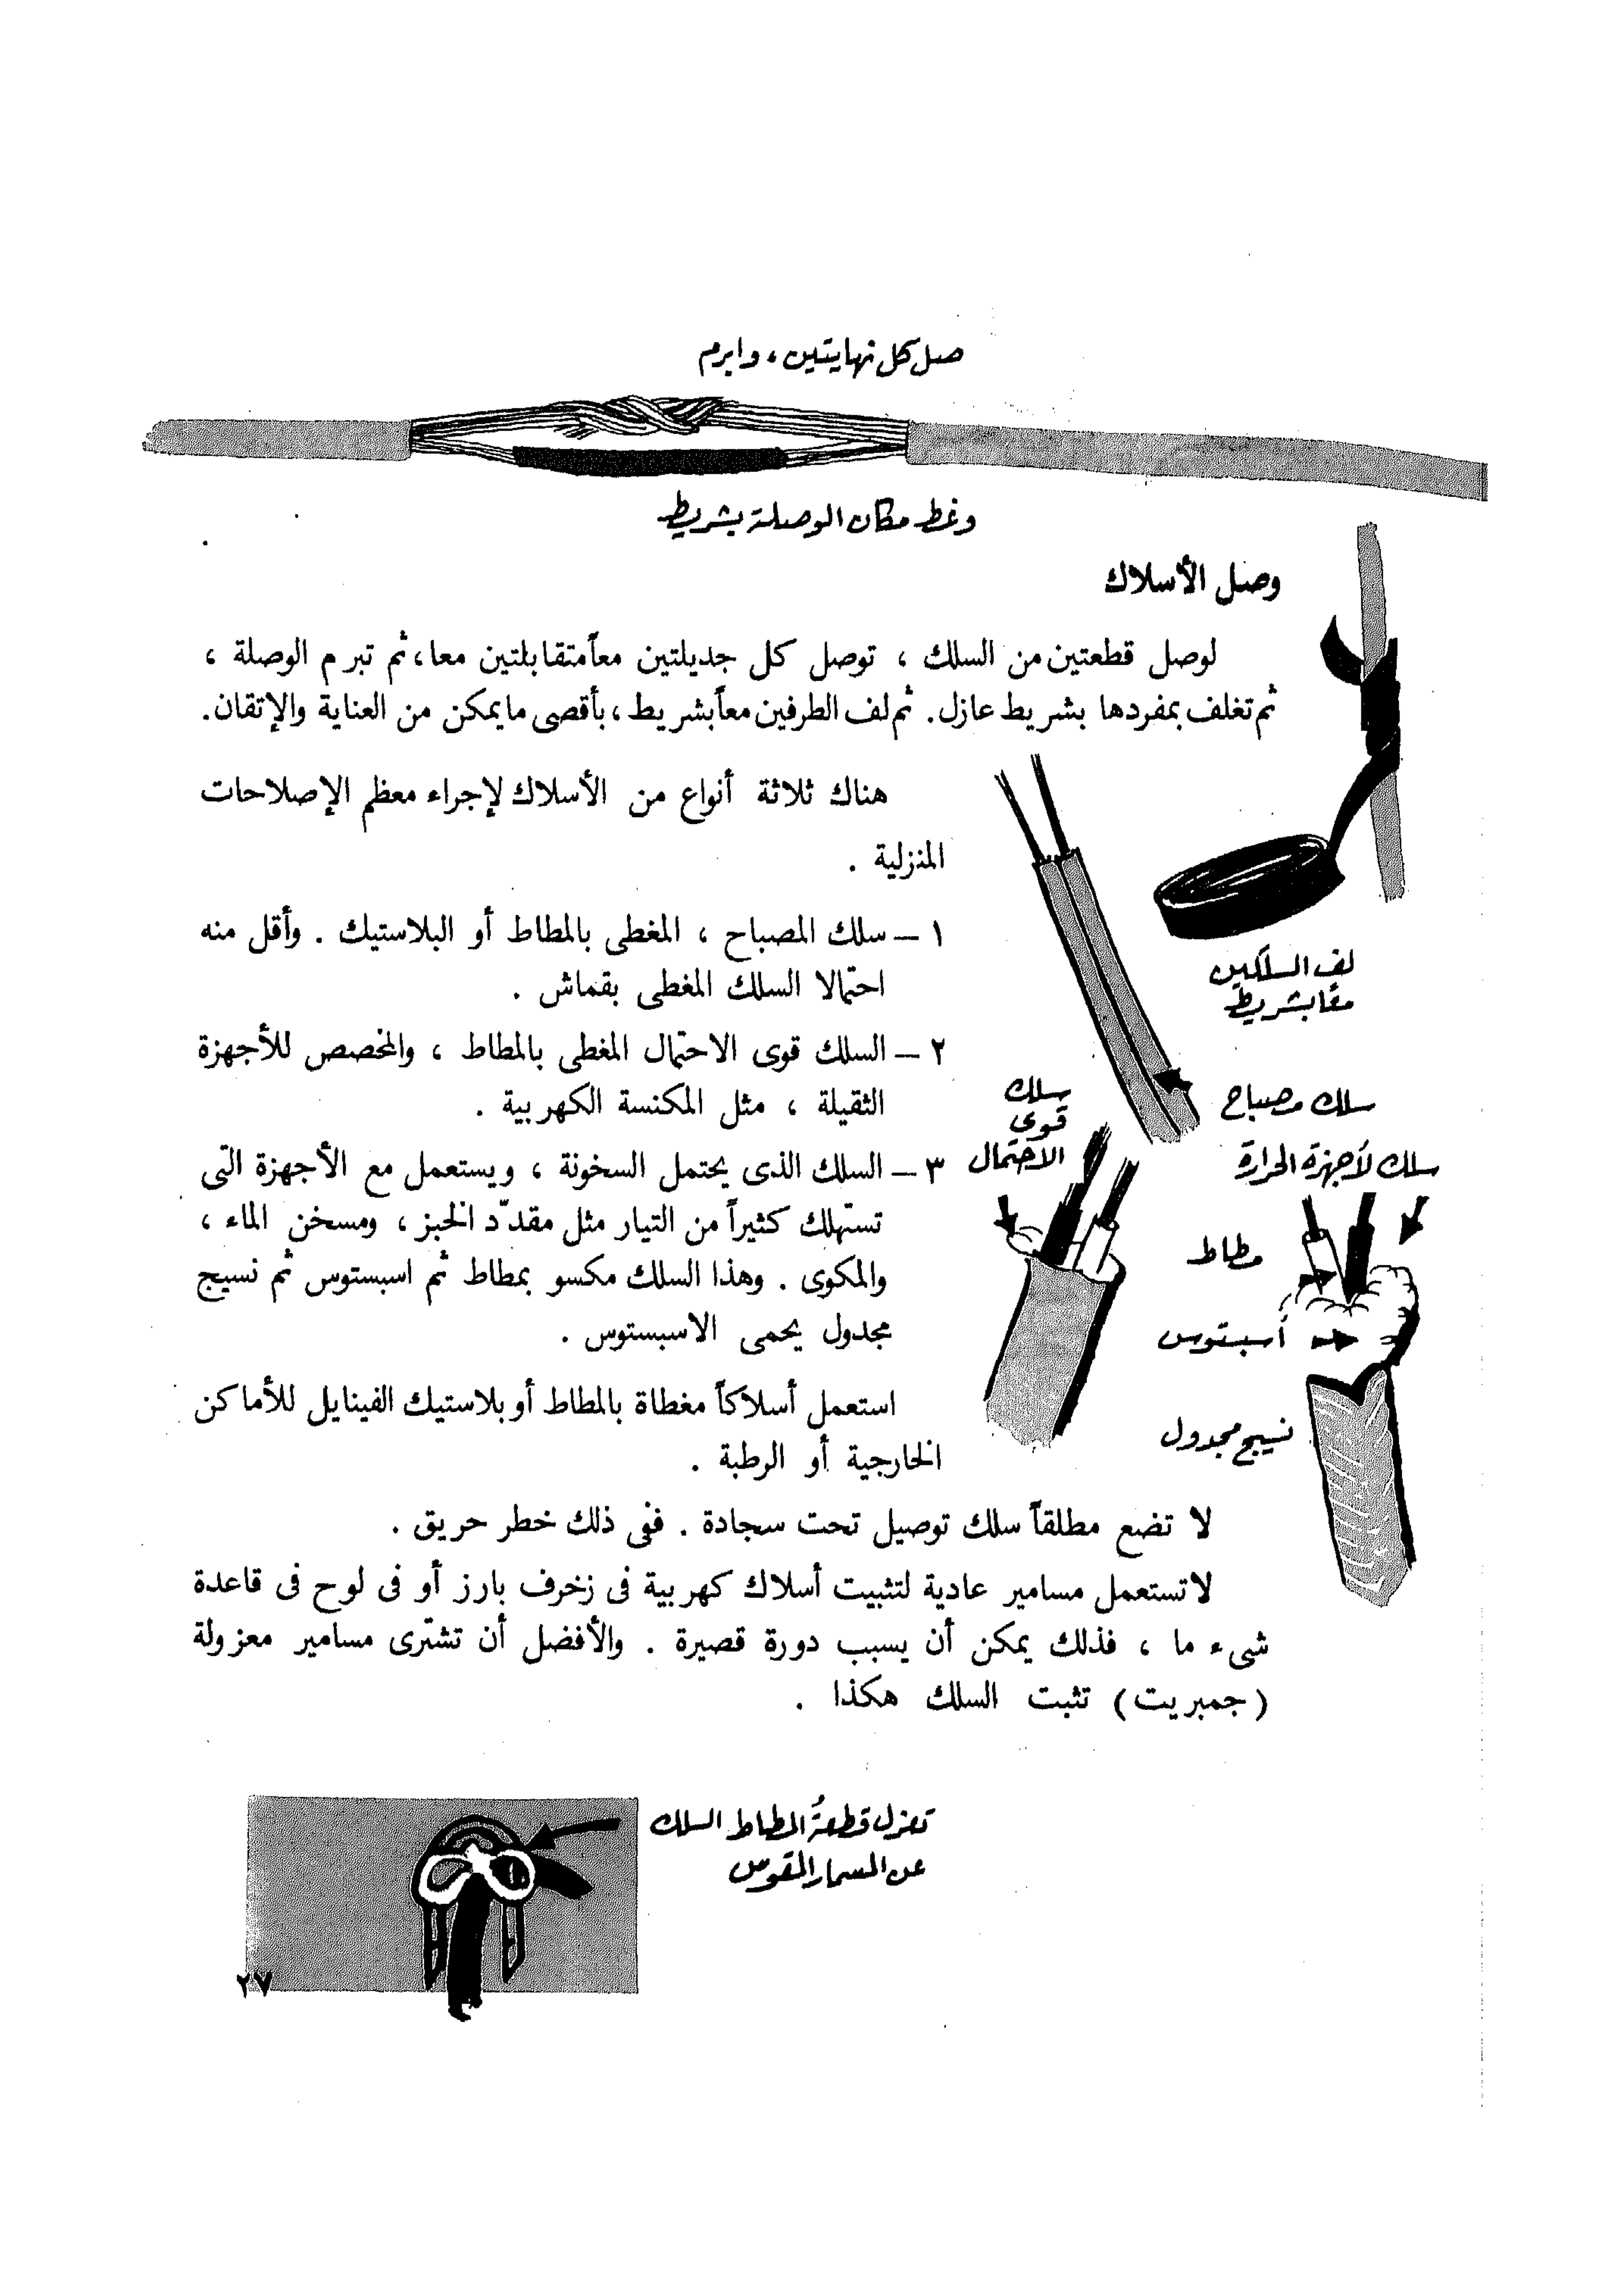 صل كل نهايتين، وابرم
وغط مكان الوصلة بشريط
وصل الأسلاك
لوصل قطعتين من السلك ، توصل كل جديلتين معاً متقابلتين معا، ثم تبرم الوصلة ،
ثم تغلف بمفردها بشريط عازل. ثم لف الطرفين معاً بشريط ، بأقصى ما يمكن من العناية والإتقان.
لف السلكين
معًا بشريط
هناك ثلاثة أنواع من الأسلاك لإجراء معظم الإصلاحات
المنزلية .
١ – سلك المصباح ، المغطى بالمطاط أو البلاستيك . وأقل منه
احتمالا السلك المغطى بقماش .
٢ – السلك قوى الاحتمال المغطى بالمطاط ، والمخصص للأجهزة
الثقيلة ، مثل المكنسة الكهربية .
٣ – السلك الذى يحتمل السخونة ، ويستعمل مع الأجهزة التى
تستهلك كثيراً من التيار مثل مقدّد الخبز ، ومسخن الماء ،
والمكوى . وهذا السلك مكسو بمطاط ثم اسبستوس ثم نسيج
مجدول يحمى الاسبستوس .
استعمل أسلاكاً مغطاة بالمطاط أو بلاستيك الفينايل للأماكن
الخارجية أو الرطبة .
سلك مصباح
سلك
قوى
الاحتمال
سلك لأجهزة الحرارة
مطاط
أسبتوس
نسيج مجدول
لا تضع مطلقاً سلك توصيل تحت سجادة . ففى ذلك خطر حريق .
لا تستعمل مسامير عادية لتثبيت أسلاك كهربية فى زخرف بارز أو فى لوح فى قاعدة
شىء ما ، فذلك يمكن أن يسبب دورة قصيرة . والأفضل أن تشترى مسامير معزولة
(جمبريت) تثبت السلك هكذا .
تعزل قطعةُ المطاط السلك
عن المسمار المقوس
٢٧